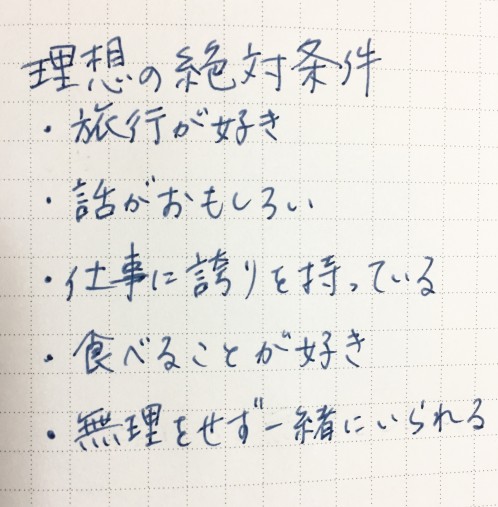 理想の絶対条件
・旅行が好き
・話がおもしろい
・仕事に誇りを持っている
・食べることが好き
・無理をせず一緒にいられる